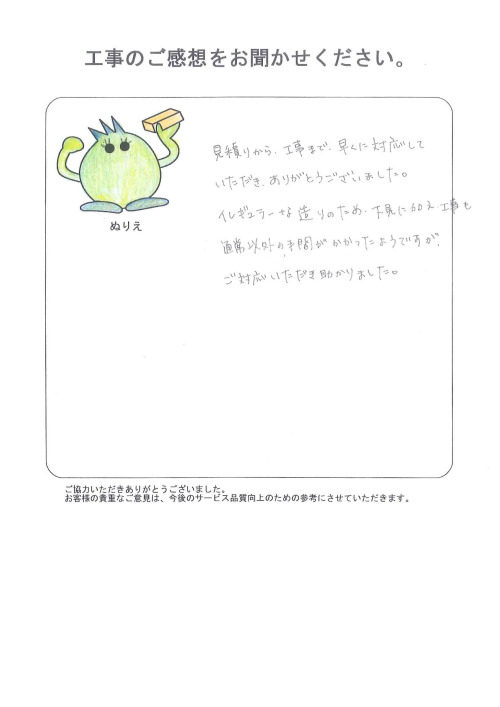 工事のご感想をお聞かせください。
見積りから、工事まで、早くに対応して
いただき、ありがとうございました。
イレギュラーな造りのため、下見に加え、工事も
通常以外の手間がかかったようですが、
ご対応いただき助かりました。
ぬりえ
ご協力いただきありがとうございました。
お客様の貴重なご意見は、今後のサービス品質向上のための参考にさせていただきます。